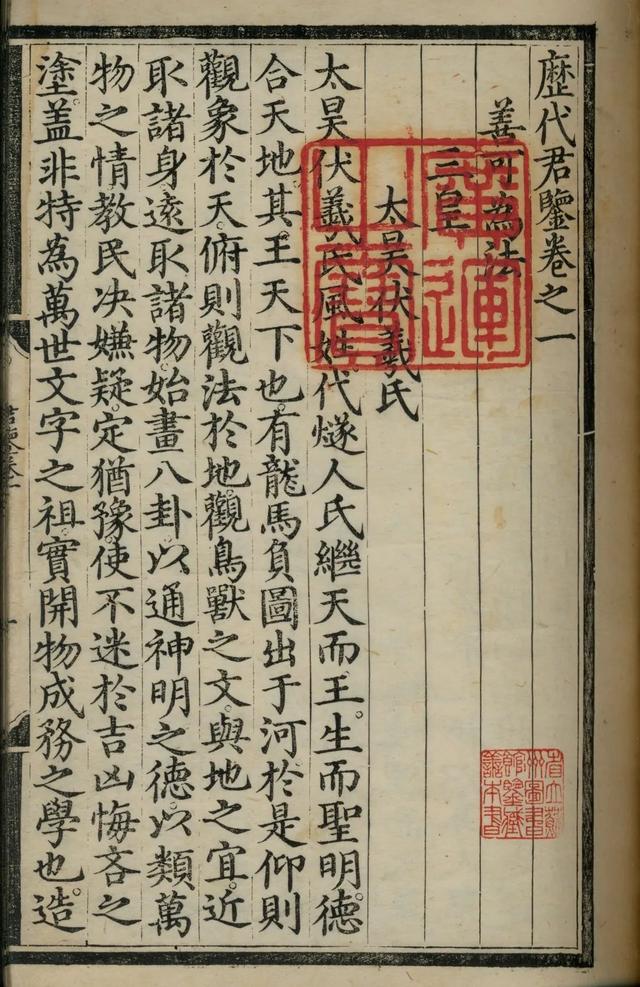 歷代君鑒卷之一
善可為法
三皇
太昊伏羲氏
太昊伏羲氏風姓代燧人氏繼天而王。生而聖明。德
合天地。其王天下也。有龍馬負圖出于河。於是仰則
觀象於天。俯則觀法於地。觀鳥獸之文。與地之宜。近
取諸身。遠取諸物。始畫八卦。以通神明之德。以類萬
物之情。教民決嫌疑。定猶豫。使不迷於吉凶悔吝之
塗。蓋非特為萬世文字之祖。實開物成務之學也。造
廣運
之寶
省立蘇
州圖書
館鑒藏
善本書